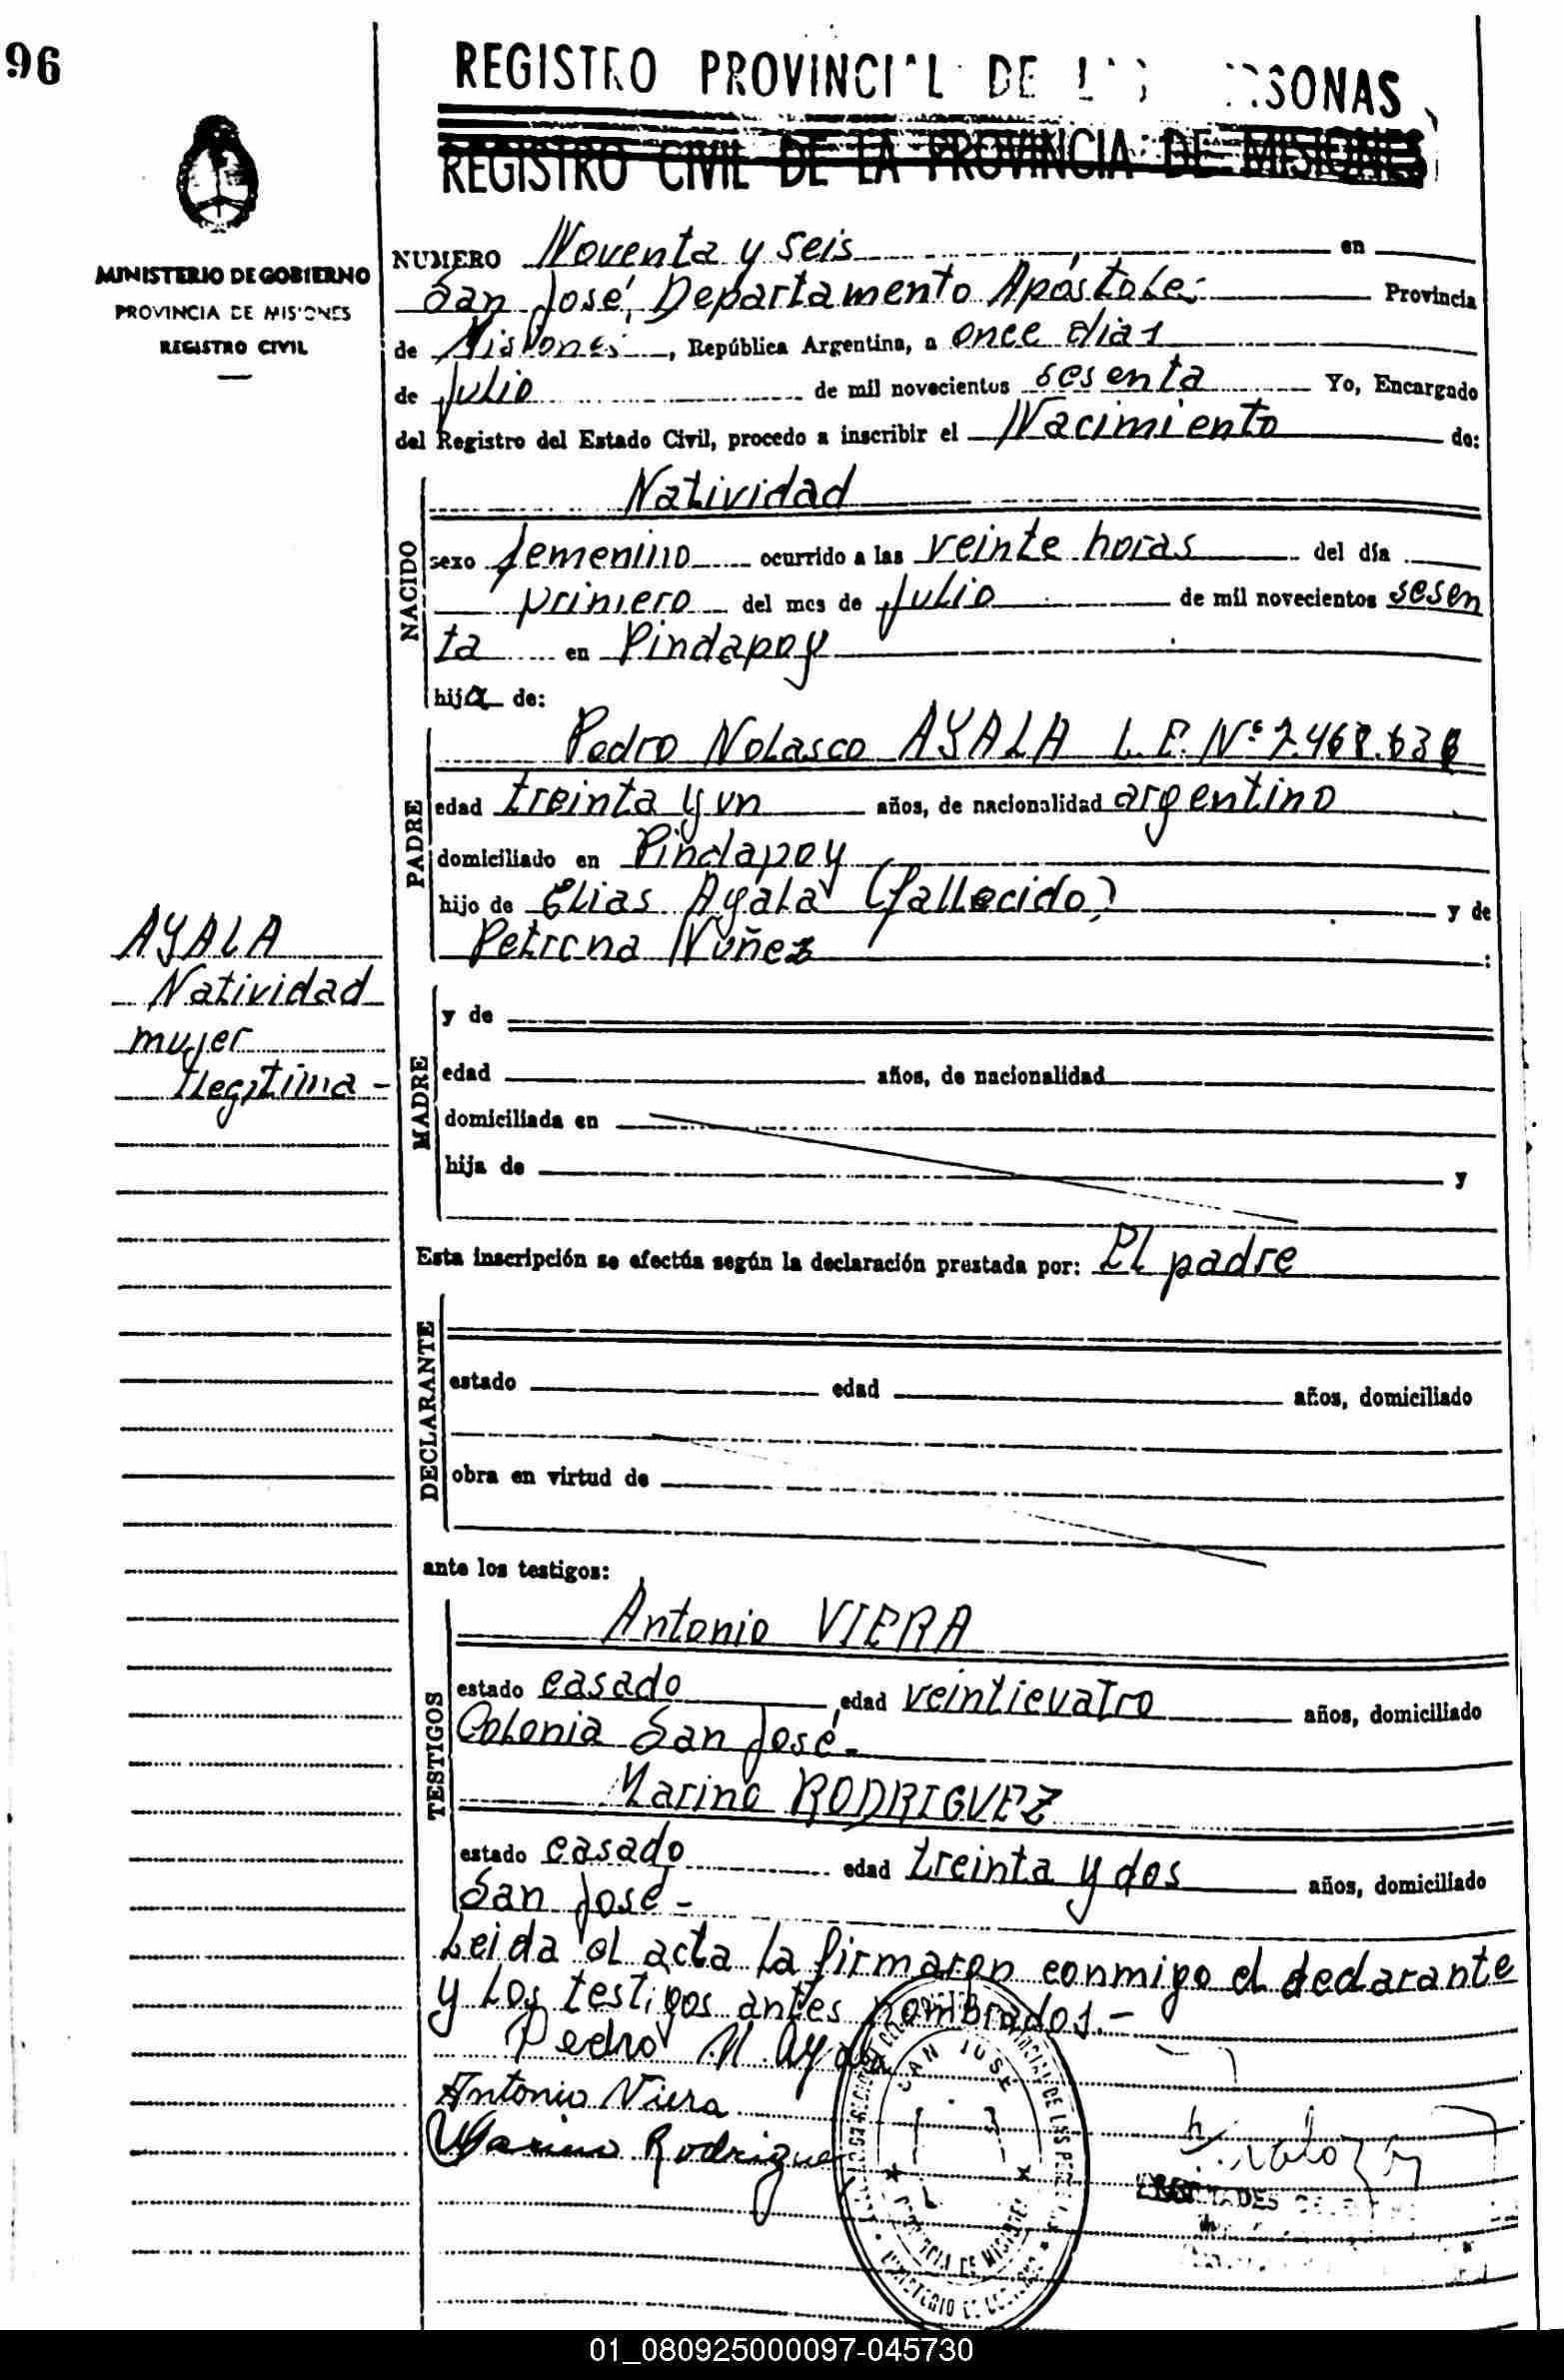 96
REGISTRO PROVINCIAL DE LAS PERSONAS
REGISTRO CIVIL DE LA PROVINCIA DE MISIONES
MINISTERIO DE GOBIERNO
PROVINCIA DE MISIONES
REGISTRO CIVIL
NUMERO Noventa y seis en
San José, Departamento Apóstoles Provincia
de Misiones, República Argentina, a once dias
de Julio de mil novecientos sesenta Yo, Encargado
del Registro del Estado Civil, procedo a inscribir el Nacimiento de:
NACIDO
Natividad
sexo femenino ocurrido a las veinte horas del día
primero del mes de Julio de mil novecientos sesen
ta en Pindapoy
hija de:
PADRE
Pedro Nolasco AYALA L.E. Nº
edad treinta y un años, de nacionalidad argentino
domiciliado en Pindapoy
hijo de Elias Ayala (fallecido) y de
Petrona Núñez :
AYALA
Natividad
mujer
Ilegitima -
MADRE
y de
edad años, de nacionalidad
domiciliada en
hija de y
Esta inscripción se efectúa según la declaración prestada por: El padre
DECLARANTE
estado edad años, domiciliado
obra en virtud de
ante los testigos:
TESTIGOS
Antonio VIERA
estado casado edad veinticuatro años, domiciliado
Colonia San José.-
Marino RODRIGUEZ
estado casado edad treinta y dos años, domiciliado
San José -
Leida el acta la firmaron conmigo el declarante
y los testigos antes nombrados.-
Pedro N. Ayala
Antonio Viera
Marino Rodriguez
SAN JOSE
PROVINCIA DE MISIONES
01_080925000097-045730